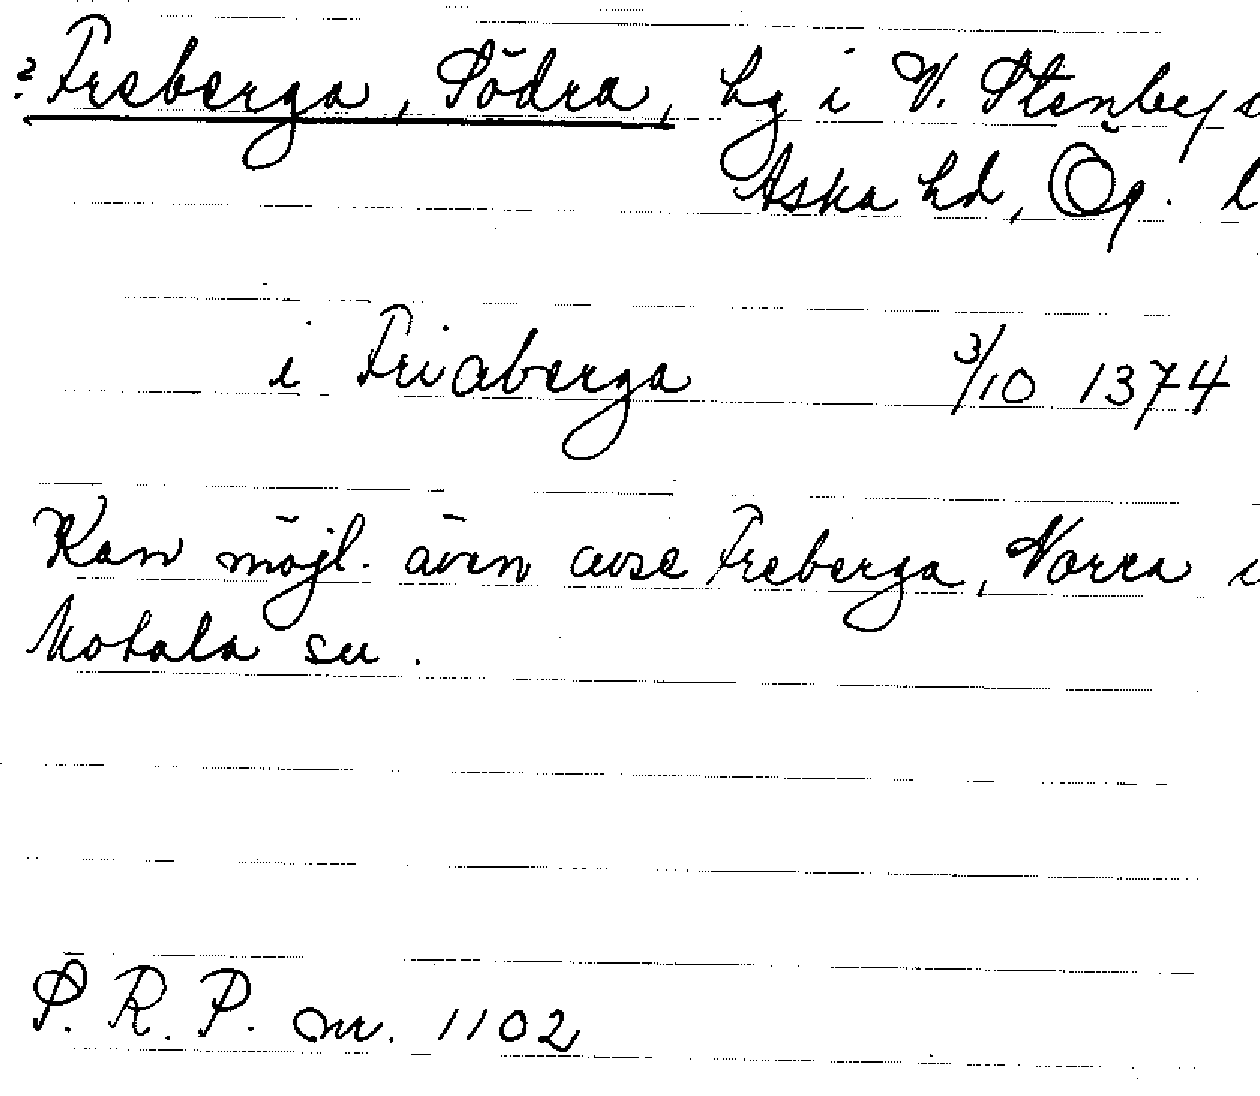 ? Freberga, Södra, hg i V. Stenby s
Aska hd, Ög. l
i Friaberga 3/10 1374
Kan möjl. även avse Freberga, Norra i
Motala sn.
S. R. P. nr. 1102